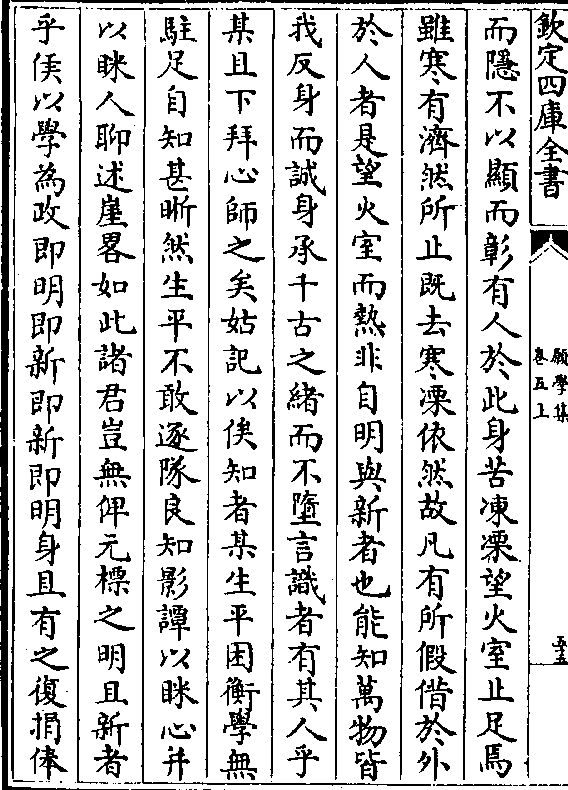 欽定四庫全書
願學集
卷五上
五十五
而隱不以顯而彰有人於此身苦凍凓望火室止足焉
雖寒有濟然所止既去寒凓依然故凡有所假借於外
於人者是望火室而熱非自明與新者也能知萬物皆
我反身而誠身承千古之緒而不墮言識者有其人乎
某且下拜心師之矣姑記以俟知者某生平困衡學無
駐足自知甚晰然生平不敢逐隊良知影譚以眯心并
以眯人聊述崖畧如此諸君豈無俾元標之明且新者
乎侯以學為政即明即新即新即明身且有之復捐俸